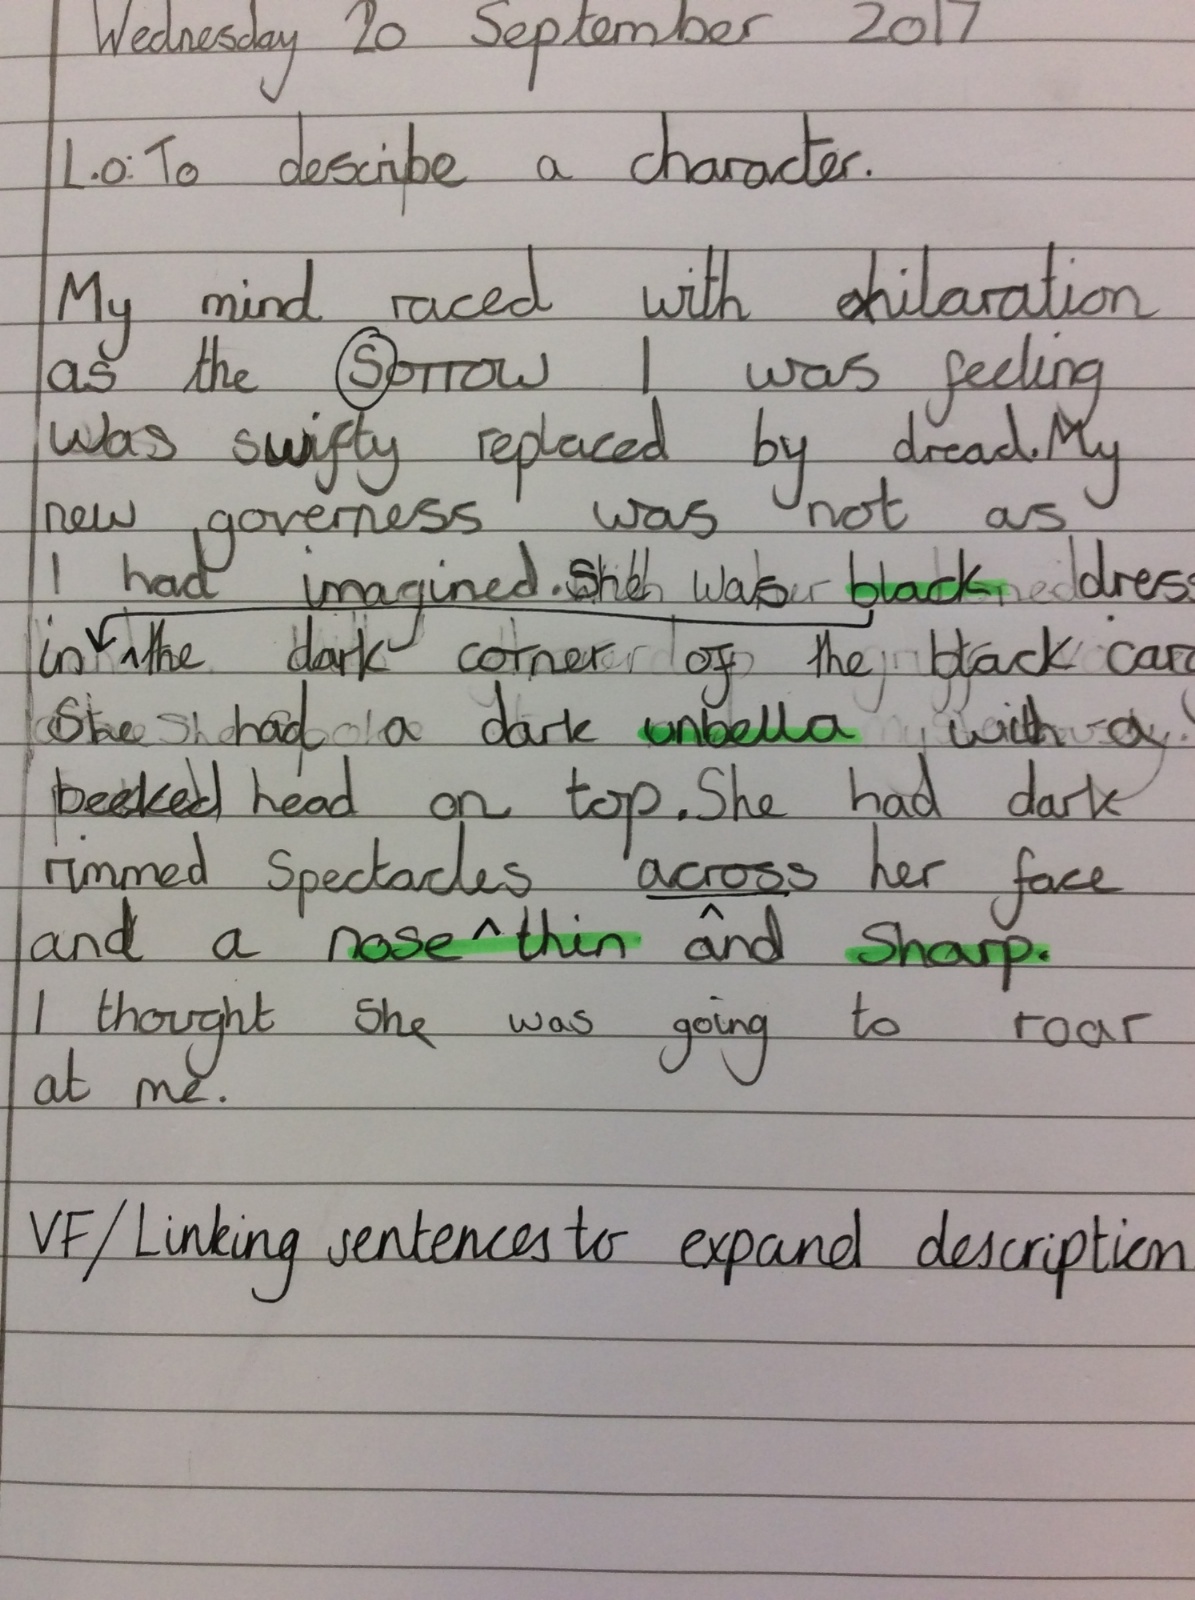 Wednesday 20 September 2017
L.O: To describe a character.
My mind raced with exhilaration
as the Sorrow I was feeling
was swifty replaced by dread. My
new governess was not as
I had imagined. She was black dress
in ^ the dark corner of the black car
She had a dark unbella with a
beeked head on top. She had dark
rimmed Spectacles across her face
and a nose ^ thin and Sharp.
I thought She was going to roar
at me.
VF/Linking sentences to expand description